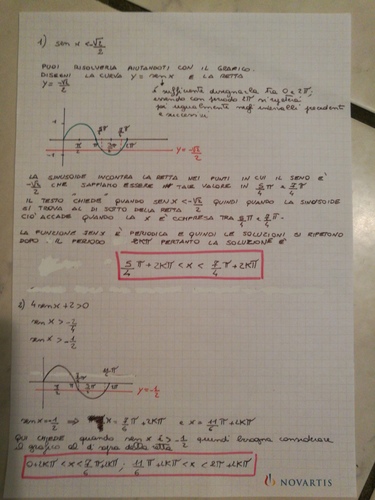 1) sen x < -√2/2
PUOI RISOLVERLA AIUTANDOTI CON IL GRAFICO.
DISEGNI LA CURVA Y = sen X E LA RETTA
Y = -√2/2
è sufficiente disegnarla tra 0 e 2π,
essendo con periodo 2π si ripeterà
poi ugualmente negli intervalli precedenti
e successivi
1
π/2 π 3π/2 2π
-1
y = -√2/2
LA SINUSOIDE INCONTRA LA RETTA NEI PUNTI IN CUI IL SENO E'
-√2/2 CHE SAPPIAMO ESSERE TALE VALORE IN 5/4 π e 7/4 π
IL TESTO "CHIEDE" QUANDO SEN X < -√2/2 QUINDI QUANDO LA SINUSOIDE
SI TROVA AL DI SOTTO DELLA RETTA
CIO' ACCADE QUANDO LA X E' COMPRESA TRA 5/4 π e 7/4 π.
LA FUNZIONE SEN X È PERIODICA E QUINDI LE SOLUZIONI SI RIPETONO
DOPO IL PERIODO 2Kπ PERTANTO LA SOLUZIONE E'
5/4 π + 2Kπ < x < 7/4 π + 2Kπ
2) 4 sen x + 2 > 0
sen x > -2/4
sen x > -1/2
π/2 π 3π/2 11π/6 2π
y = -1/2
sen x = -1/2 ⇒ X = 7/6 π + 2Kπ e X = 11/6 π + 2Kπ
QUI CHIEDE quando sen x > -1/2 quindi bisogna considerare
il grafico al di sopra della retta
0 + 2Kπ < x < 7/6 π + 2Kπ ; 11/6 π + 2Kπ < x < 2π + 2Kπ
NOVARTIS